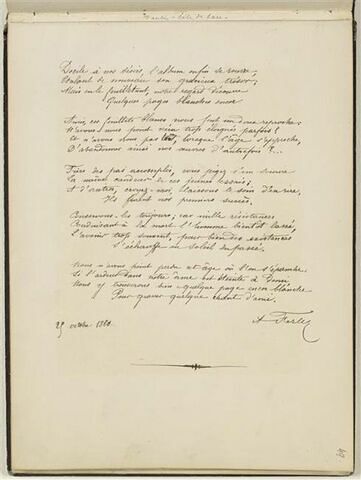 Docile à nos désirs, l'album enfin se rouvre,
de nouveau son gracieux trésor;
Mais en le feuilletant, notre regard découvre
Quelques pages blanches encor

Ainsi ces feuillets blancs nous font un doux reproche:
N'avons nous point vécu trop éloignés parfois?
Et n'avons nous pas tort, lorsque l'âge s'approche,
D'abandonner ainsi nos œuvres d'autrefois?..

Fuire des pas
La même candeur de ces jeunes essais;
Et d'autres, croyez-moi, laissons le soin d'en rire,
Ils furent nos premiers succès.

Conservons les toujours; car mille résistances
Conduisant à la mort l'homme bientôt lassé,
L'avenir trop souvent, pour bien des existences
S'échauffe au soleil du passé.

Nous n'avons point perdu cet âge où l'on s'épanche
Si l'ardeur dans notre âme est éteinte à demi
Nous y trouverons bien quelque page encor blanche
Pour graver quelque chant d'ami.

25 octobre 1880.